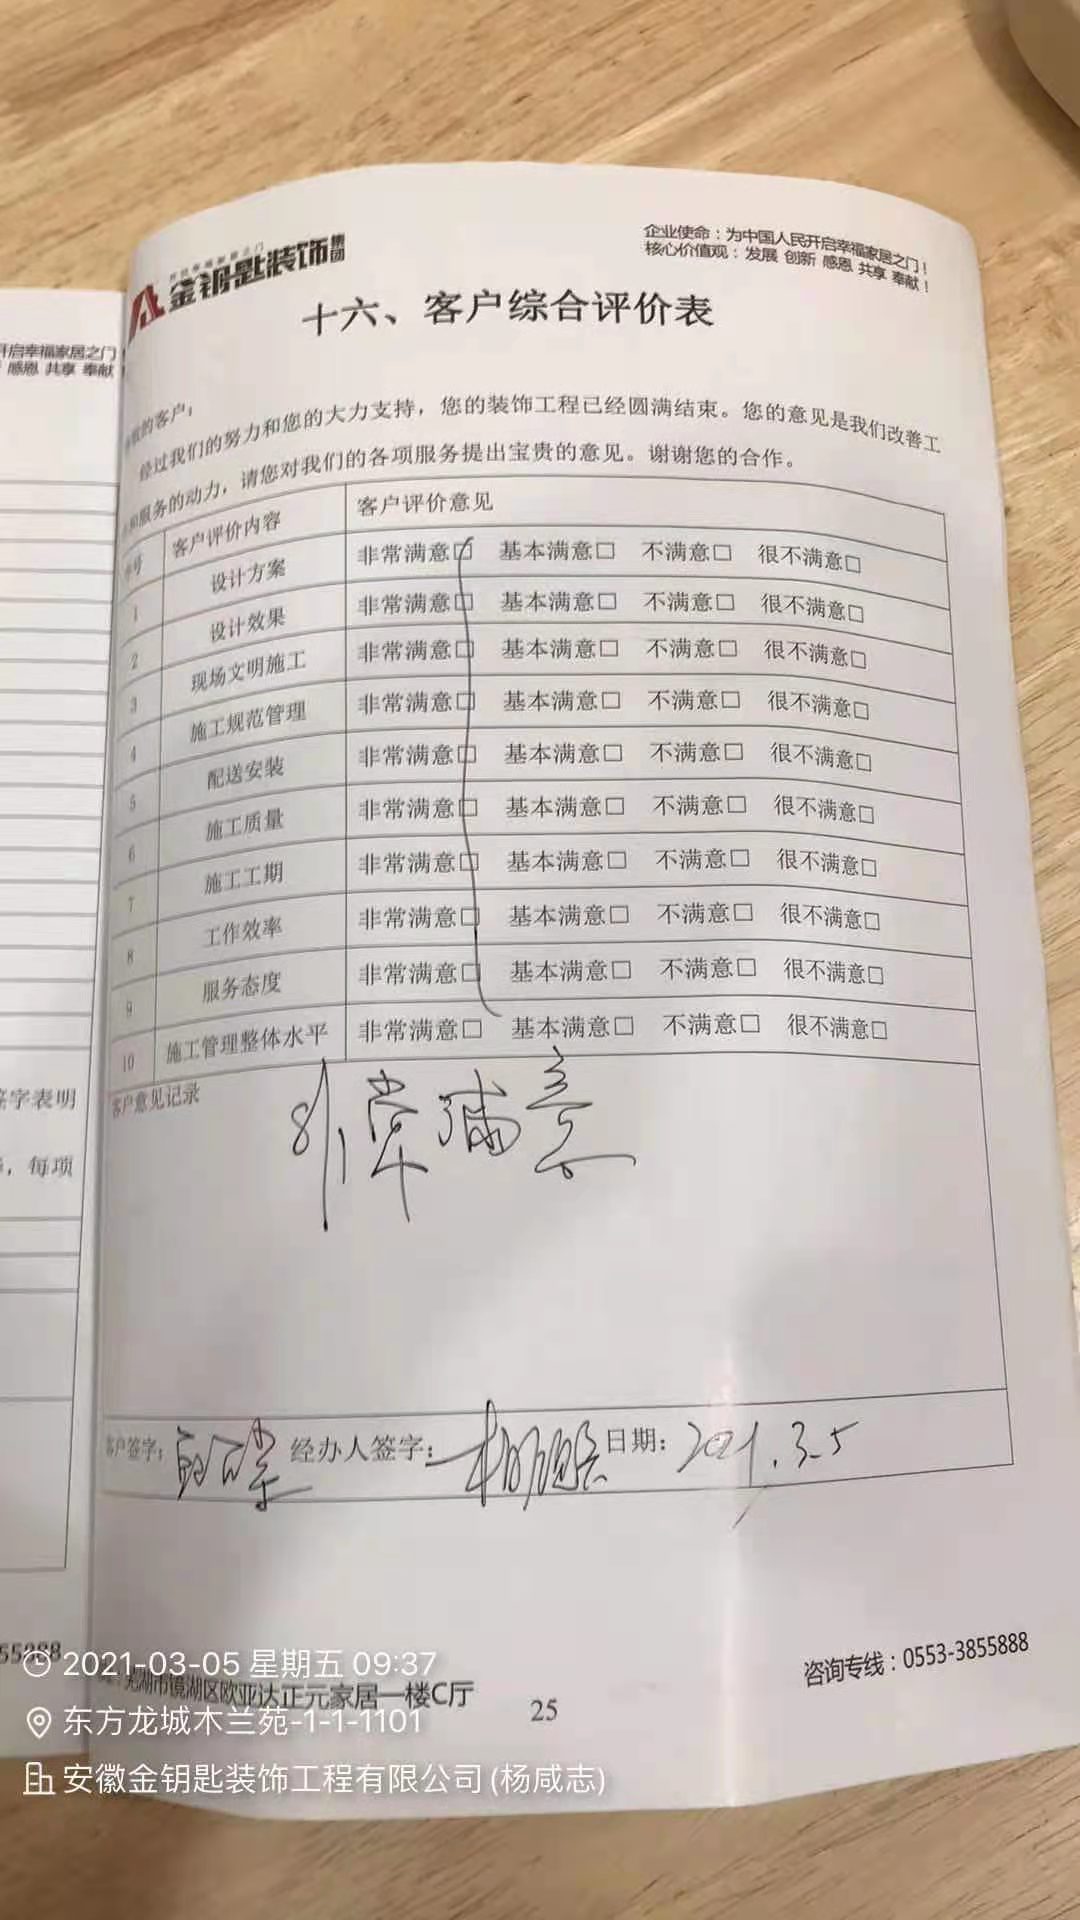 金钥匙装饰集团
企业使命：为中国人民开启幸福家居之门！
核心价值观：发展 创新 感恩 共享 奉献！
开启幸福家居之门
感恩 共享 奉献
十六、客户综合评价表
的客户：
经过我们的努力和您的大力支持，您的装饰工程已经圆满结束。您的意见是我们改善工
和服务的动力，请您对我们的各项服务提出宝贵的意见。谢谢您的合作。
号 客户评价内容 客户评价意见
1 设计方案 非常满意□ 基本满意□ 不满意□ 很不满意□
2 设计效果 非常满意□ 基本满意□ 不满意□ 很不满意□
3 现场文明施工 非常满意□ 基本满意□ 不满意□ 很不满意□
4 施工规范管理 非常满意□ 基本满意□ 不满意□ 很不满意□
5 配送安装 非常满意□ 基本满意□ 不满意□ 很不满意□
6 施工质量 非常满意□ 基本满意□ 不满意□ 很不满意□
7 施工工期 非常满意□ 基本满意□ 不满意□ 很不满意□
8 工作效率 非常满意□ 基本满意□ 不满意□ 很不满意□
9 服务态度 非常满意□ 基本满意□ 不满意□ 很不满意□
10 施工管理整体水平 非常满意□ 基本满意□ 不满意□ 很不满意□
签字表明
，每项
客户意见记录
非常满意
客户签字： 经办人签字： 日期：2021.3.5
55888
咨询专线：0553-3855888
芜湖市镜湖区欧亚达正元家居一楼C厅
25
2021-03-05 星期五 09:37
东方龙城木兰苑-1-1-1101
安徽金钥匙装饰工程有限公司(杨咸志)